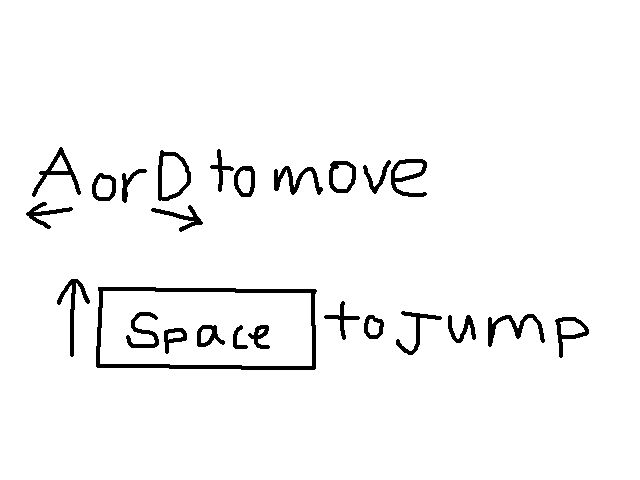 A or D to move
Space to Jump